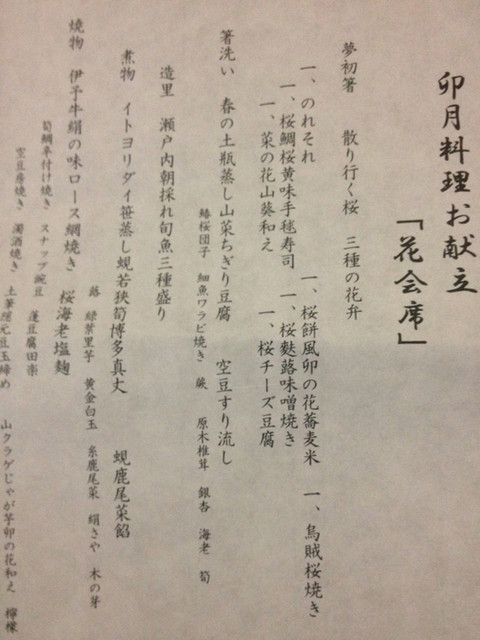 卯月料理お献立
「花会席」
夢初箸　散り行く桜　三種の花弁
一、のれそれ　一、桜餅風卯の花蕎麦米　一、烏賊桜焼き
一、桜鯛桜黄味手毬寿司　一、桜麩蕗味噌焼き
一、菜の花山葵和え　一、桜チーズ豆腐
箸洗い　春の土瓶蒸し山菜ちぎり豆腐　空豆すり流し
鰆桜団子　細魚ワラビ焼き　蕨　原木椎茸　銀杏　海老　筍
造里　瀬戸内朝採れ旬魚三種盛り
煮物　イトヨリダイ笹蒸し蜆若狭筍博多真丈　蜆鹿尾菜餡
蕗　緑葉里芋　黄金白玉　糸鹿尾菜　絹さや　木の芽
焼物　伊予牛絹の味ロース網焼き　桜海老塩麹
筍鯛辛付け焼き　スナップ豌豆　蓮豆腐田楽
空豆房焼き　濁酒焼き　土筆隠元豆玉締め　山クラゲじゃが芋卯の花和え　檸檬